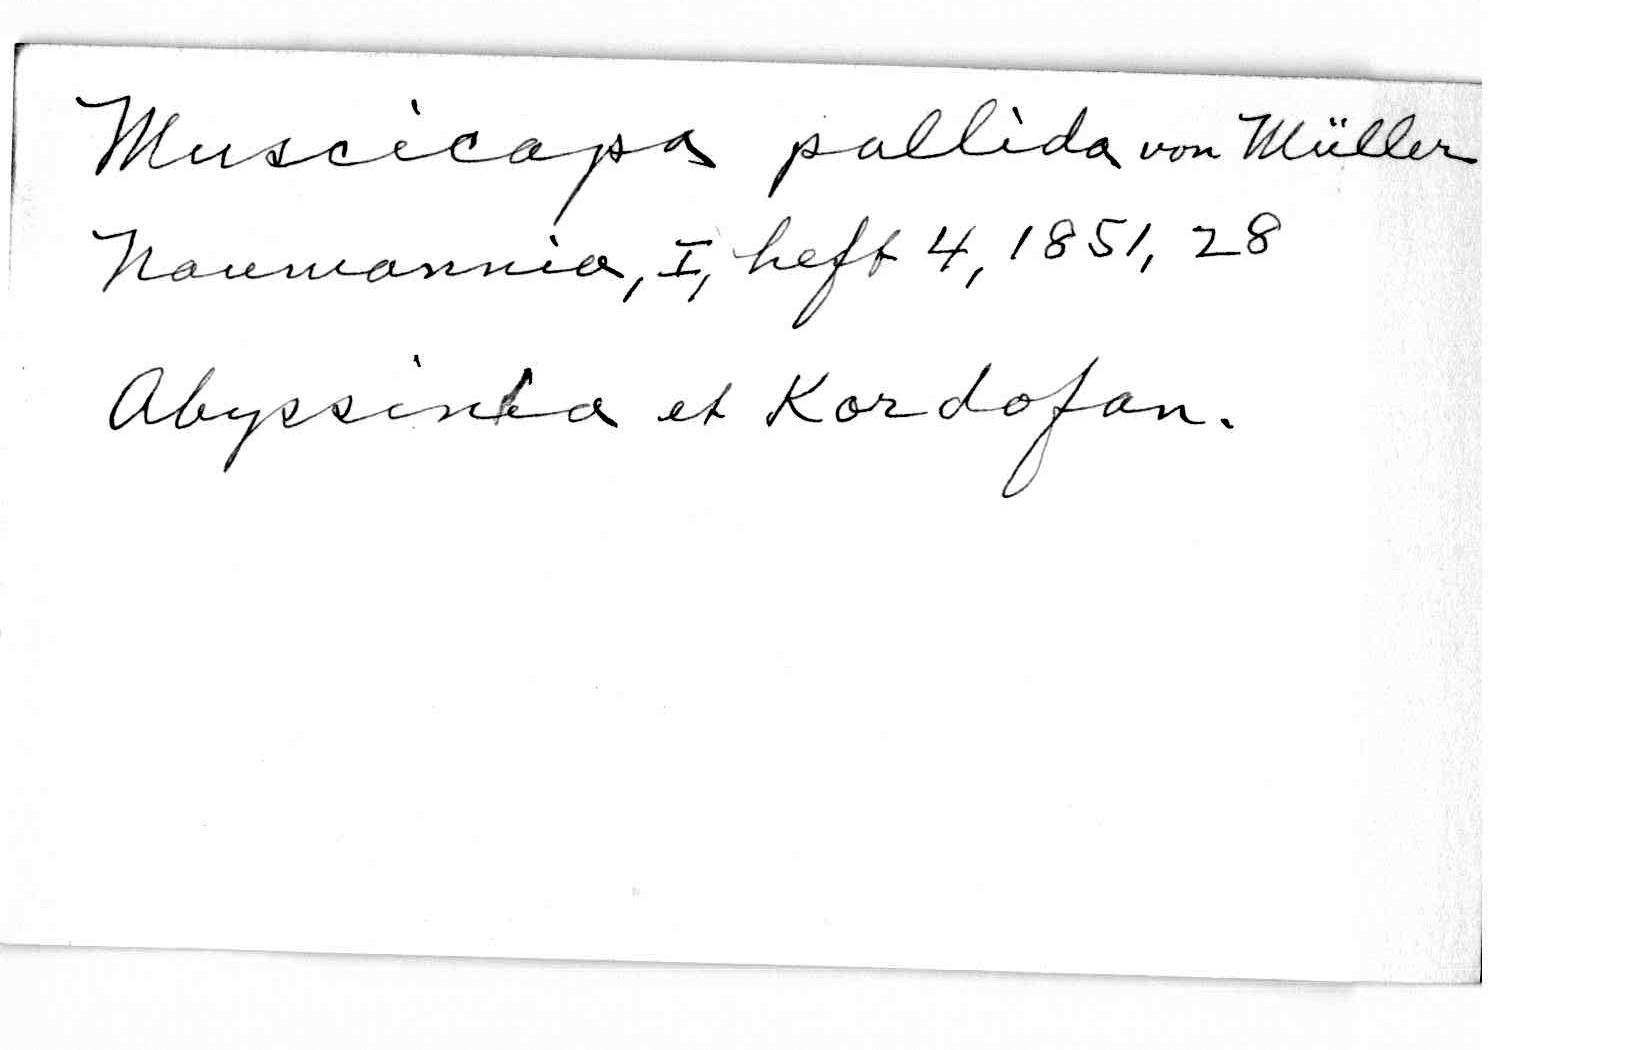 Muscicapa pallida von Müller
Naumannia, I, heft 4, 1851, 28
Abyssinia et Kordofan.